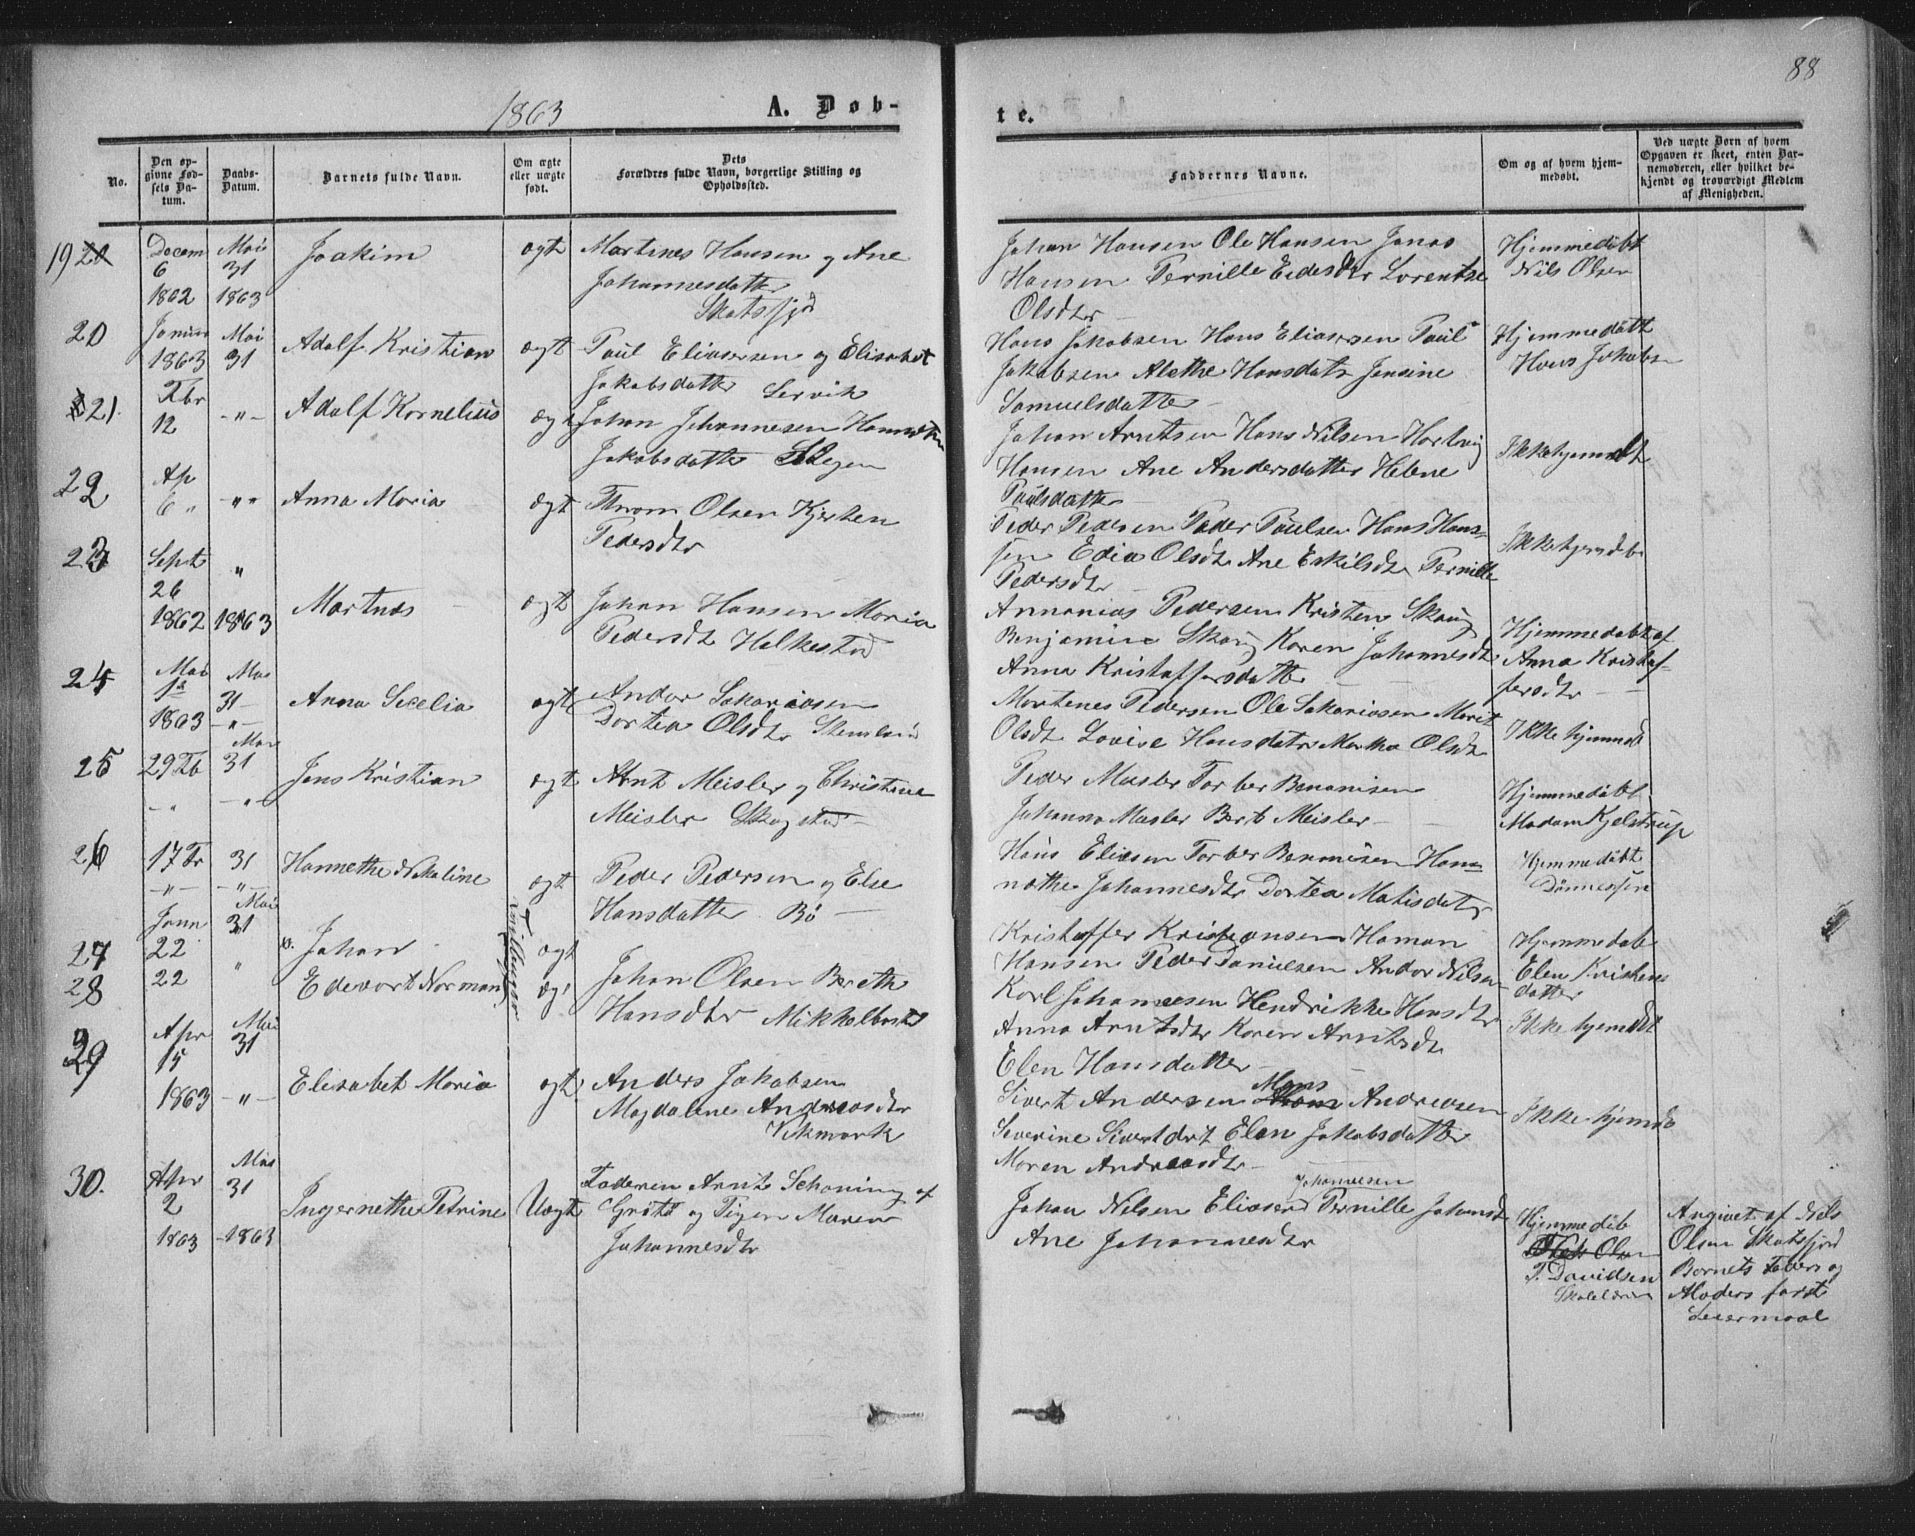 88
1863
A. Døb-
te.
No.
Den op-
givne Fød-
sels Da-
tum.
Daabs-
Datum.
Barnets fulde Navn.
Om ægte
eller uægte
født.
Dets
Forældres fulde Navn, borgerlige Stilling og
Opholdssted.
Faddernes Navne.
Om og af hvem hjem-
medøbt.
Ved uægte Børn af hvem
Opgaven er skeet, enten Bar-
nemoderen, eller hvilket be-
kjendt og troværdigt Medlem
af Menigheden.
19
Decem
6
1862
Mai
31
1863
Joakim
ægte
Martines Hansen og Ane
Johannesdatter
Skatsfjod
Johan Hansen Ole Hansen Jonas
Hansen Pernille Eidesdtr Lorentse
Olsdtr
Hjemmedøbt
Nils Olsen
20
1863
Mai
31
Adolf Kristian
ægte
Paul Eliasersen og Elisabet
Jakobsdatter Lervik
Hans Jakobsen Hans Eliasersen Paul
Jakobsen Alethe Hansdatr Jensine
Samuelsdatter
Hjemmedøbt
Hans Jakobsn
21.
Fbr
12
-"-
Adolf Kornelius
ægt
Johan Johannesen
Jakobsdatter
Johan Arntsen Hans Nilsen Hartvig
Hansen Ane Andersdatter Helene
Paulsdatter
Ikke hjemmdt
22
Ap
6 "
" "
Anna Maria
ægt
Olsen Kjersten
Pedersdtr
Peder Pedersen Peder Paulsen Hans Hans-
sen Edia Olsdtr Ane Eskilsdtr Pernille
Pedersdtr
Ikke hjemdøb
23
Sept
26
1862
"
1863
Martnes
ægt
Johan Hansen Maria
Pedersdtr Halkestad
Annanias Pedersen Kristen Skaug
Benjamine Skaug Karen Johannesdtr
Anna Kristoffersdatter
Hjemmedøbt af
Anna Kristof-
fersdtr
24
Mai
1863
Mai
31
-"-
Anna Secelia
ægt
Andor Sakariasen
Dortea Olsdtr
Mortenes Pedersen Ole Sakariasen Marit
Olsdtr Lovise Hansdatr Martha Olsdtr
Ikke hjemmd
25
29 Fb
-"
Mai
31
-"
Jens Kristian
ægt
Arnt Meisler og Christine
Meisler Skagstad
Peder Musler Torber Benonisen
Johanna Masler Berb Meisler
Hjemmedøbt
Madam Kjelstrup
26
17 Fr
-"-
31
-"-
Hannethe Nikoline
ægt
Peder Pedersen og Else
Hansdatter Bø
Hans Eliesen Torber Bennisen Han-
nathe Johannesdtr Dortea Matisdatr
Hjemmedøbt
27
Jann
22
Mai
31
Johan
Tvillinger
ægt
28
22
"
Edevart Norman
æg
Johan Olsen Bereth
Hansdtr Mikkelbostd
Kristoffer Kristjansen Haman
Hansen Peder Danielsen Andor Nilsen
Karl Johannesen Hendrikke Hansdtr
Anna Arntsdtr Karen Arntsdtr
Elen Hansdatter
Hjemmedøb
Elen Kristens
datter
Ikke hjemdøt
29
Apr
15
1863
Mai
31
-"-
Elisabet Maria
ægt
Anders Jakobsen
Magdalene Andreasdtr
Vikmark
Sivert Andersen Mons Andreasen
Severine Sivertdtr Elen Jakobsdatter
Maren Andreasdtr
Ikke hjemdø
30.
Apr
2
1863
Mai
31
1863
Ingernethe Petrine
Uægt
Faderen Arnt Schøning af
Grøtø og Pigen Maren
Johannesdtr
Johannesen
Johan Nilsen Eliasen Pernille Johansdtr
Ane Johannesdtr
Hjemmedøb
Olsen
P. Davidsen
Skolelærer
Angivet af Nils
Olsen Skotsfjord
Barnets Faders og
Moders først
Leiermaal